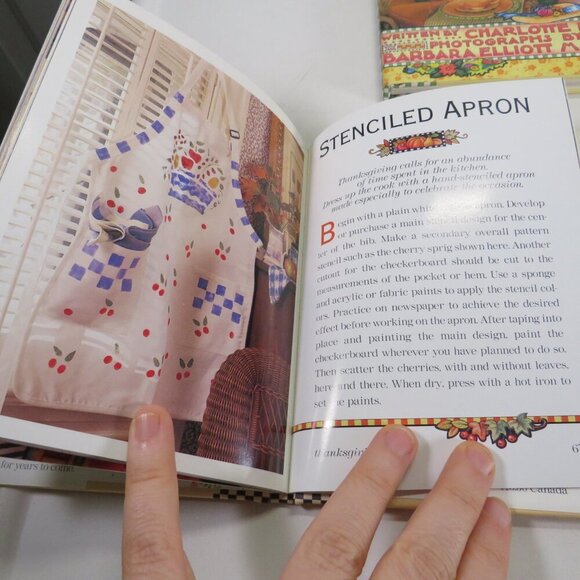 WRITTEN BY CHARLOTTE
PHOTOGRAPHS BY
BARBARA ELLIOTT M
STENCILED APRON
Thanksgiving calls for an abundance
of time spent in the kitchen.
Dress up the cook with a hand-stenciled apron
made especially to celebrate the occasion.
Begin with a plain apron. Develop
or purchase a main design for the cen-
ter of the bib. Make a secondary overall pattern
stencil such as the cherry sprig shown here. Another
cutout for the checkerboard should be cut to the
measurements of the pocket or hem. Use a sponge
and acrylic or fabric paints to apply the stencil col-
ors. Practice on newspaper to achieve the desired
effect before working on the apron. After taping into
place and painting the main design, paint the
checkerboard wherever you have planned to do so.
Then scatter the cherries, with and without leaves,
here and there. When dry, press with a hot iron to
set the paints.
thanksgiv
6
for years to come.
Canada